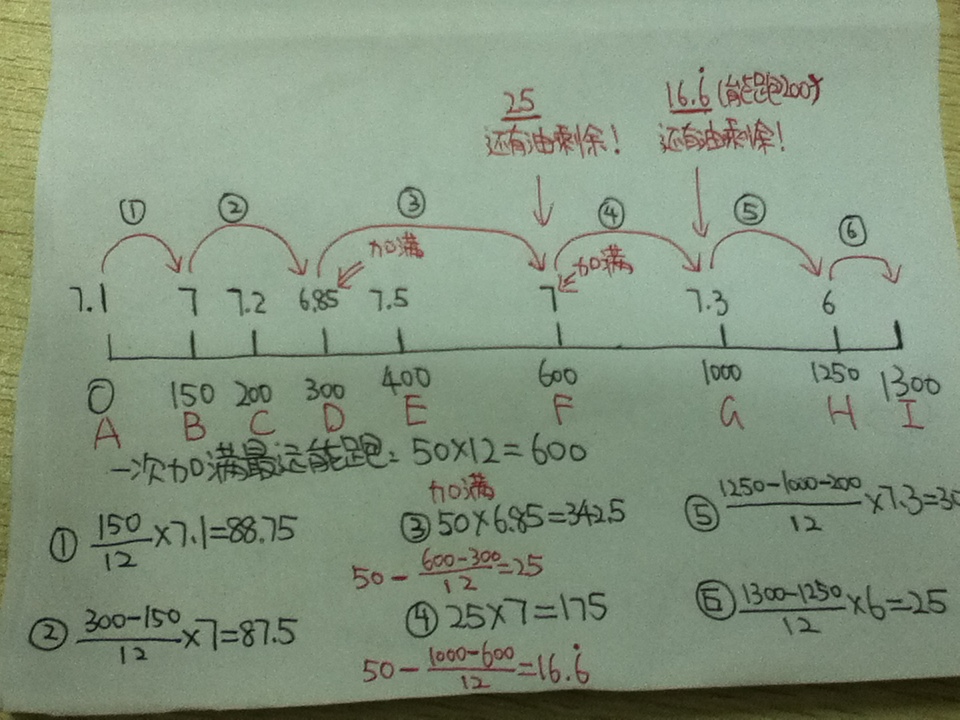 25
还有油剩余！
16.6̇ (能跑200)
还有油剩余！
① ② ③ ④ ⑤ ⑥
加满 加满
7.1 7 7.2 6.85 7.5 7 7.3 6
0 150 200 300 400 600 1000 1250 1300
A B C D E F G H I
一次加满最远能跑：50×12=600
① 150/12×7.1=88.75
② (300-150)/12×7=87.5
加满
③ 50×6.85=342.5
50-(600-300)/12=25
④ 25×7=175
50-(1000-600)/12=16.6̇
⑤ (1250-1000-200)/12×7.3=30
⑥ (1300-1250)/12×6=25